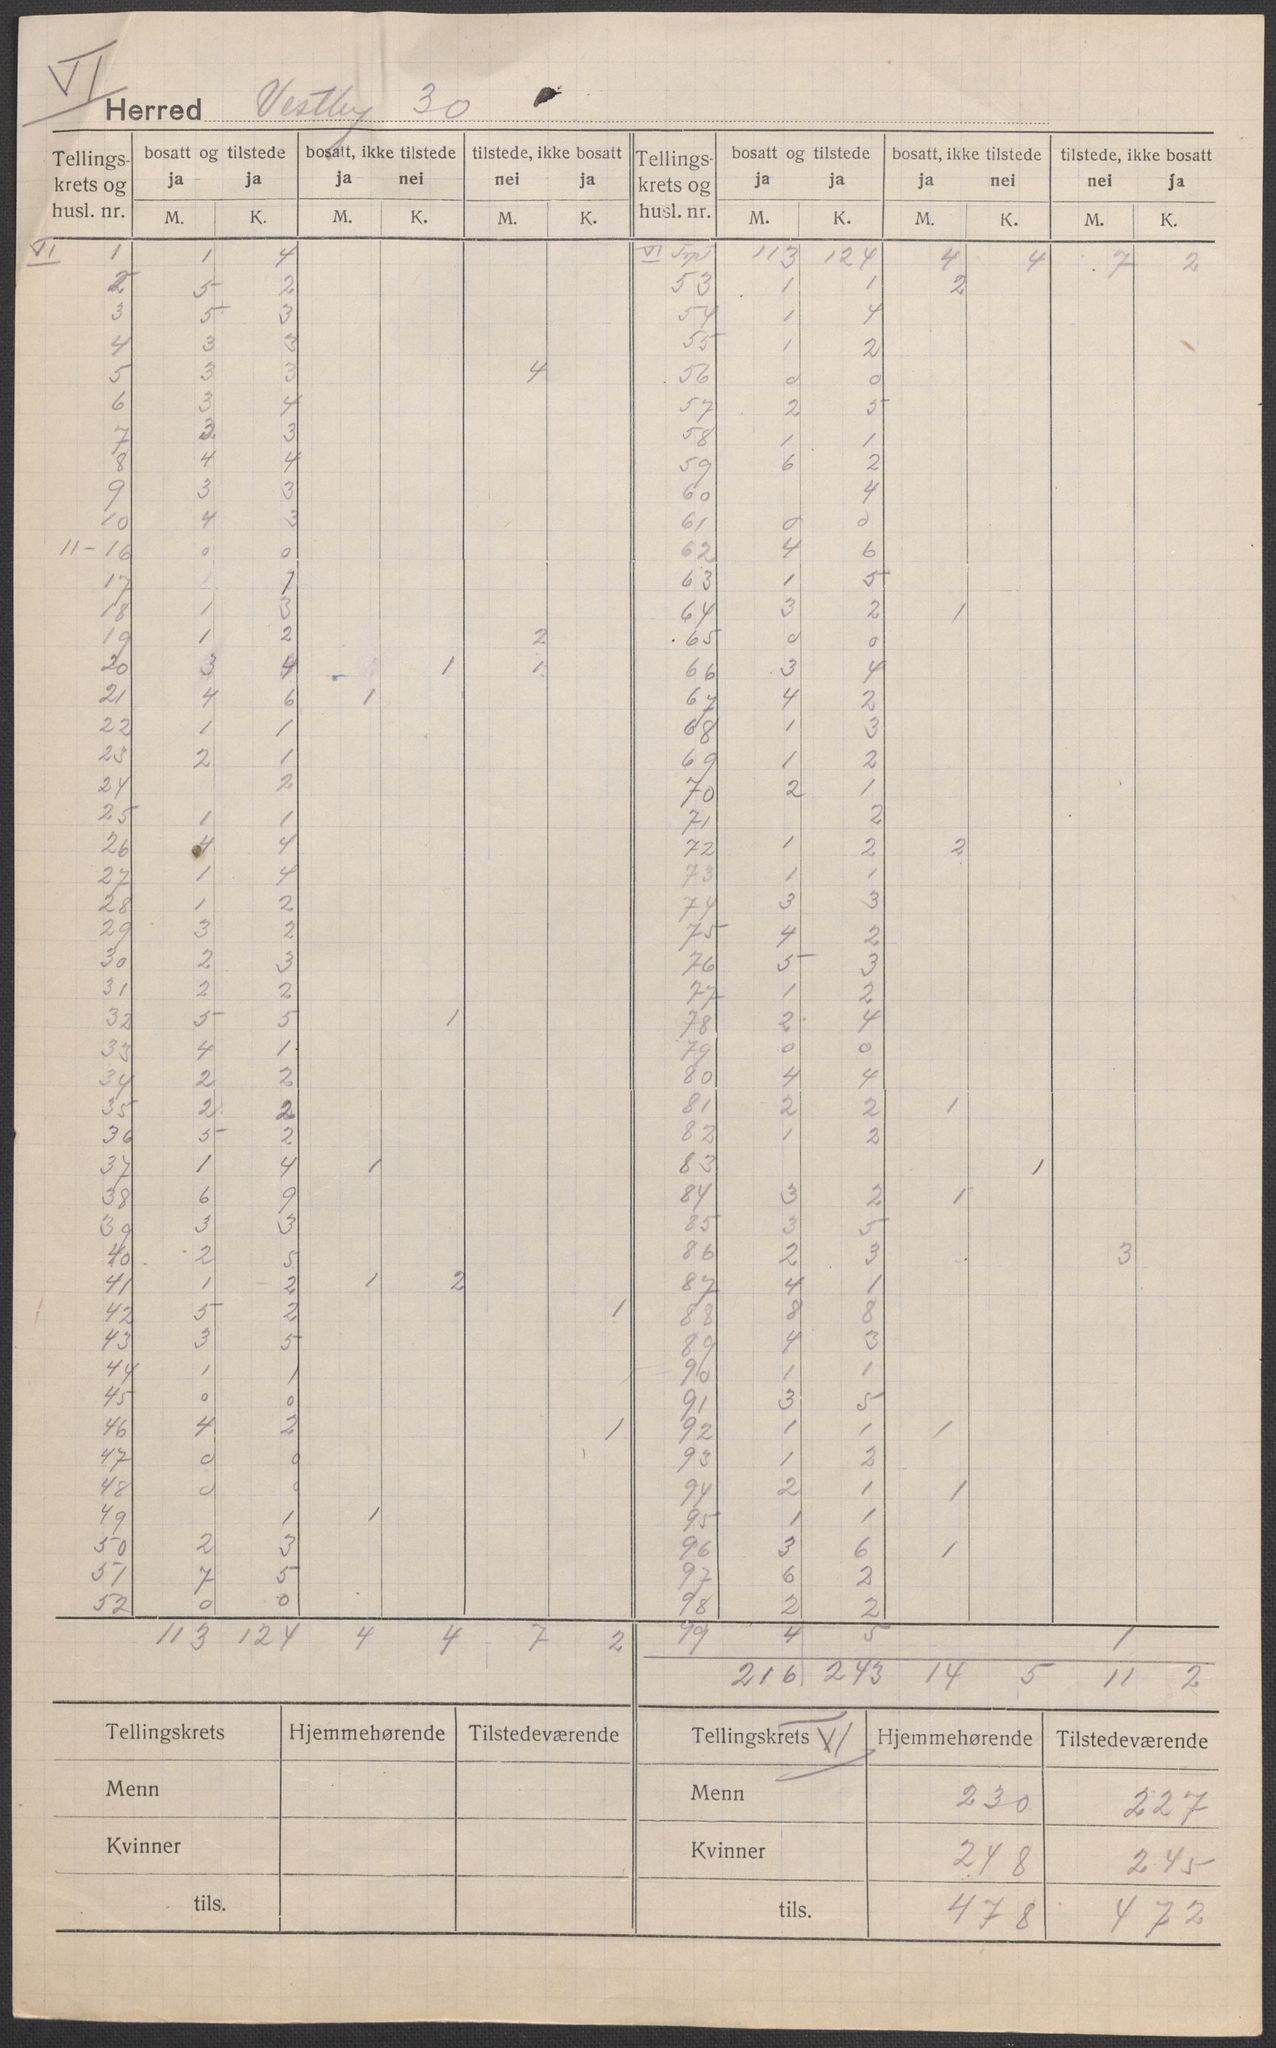 VI
Herred Vestby 30
Tellings- bosatt og tilstede bosatt, ikke tilstede tilstede, ikke bosatt Tellings- bosatt og tilstede bosatt, ikke tilstede tilstede, ikke bosatt
krets og ja ja ja nei nei ja krets og ja ja ja nei nei ja
husl. nr. M. K. M. K. M. K. husl. nr. M. K. M. K. M. K.
VI 1 1 4 VI 113 124 4 4 7 2
2 5 2 53 1 1 2
3 5 3 54 1 4
4 3 3 55 1 2
5 3 3 4 56 0 0
6 3 4 57 2 5
7 2 3 58 1 1
8 4 4 59 6 2
9 3 3 60 4
10 4 3 61 0 0
11-16 0 0 62 4 6
17 1 63 1 5
18 1 3 64 3 2 1
19 1 2 2 65 0 0
20 3 4 1 1 66 3 4
21 4 6 1 67 4 2
22 1 1 68 1 3
23 2 1 69 1 2
24 2 70 2 1
25 1 1 71 2
26 4 4 72 1 2 2
27 1 4 73 1 1
28 1 2 74 3 3
29 3 2 75 4 2
30 2 3 76 5 3
31 2 2 77 1 2
32 5 5 1 78 2 4
33 4 1 79 0 0
34 2 2 80 4 4
35 2 2 81 2 2 1
36 5 2 82 1 2
37 1 4 1 83 1
38 6 9 84 3 2 1
39 3 3 85 3 5
40 2 5 86 2 3 3
41 1 2 1 2 87 4 1
42 5 2 1 88 8 8
43 3 5 89 4 3
44 1 1 90 1 1
45 0 0 91 3 5
46 4 2 1 92 1 1 1
47 0 0 93 1 2
48 0 0 94 2 1 1
49 1 1 95 1 1
50 2 3 96 3 6 1
51 7 5 97 6 2
52 0 0 98 2 2
113 124 4 4 7 2 99 4 5 1
216 243 14 5 11 2
Tellingskrets Hjemmehørende Tilstedeværende Tellingskrets VI Hjemmehørende Tilstedeværende
Menn Menn 230 227
Kvinner Kvinner 248 245
tils. tils. 478 472